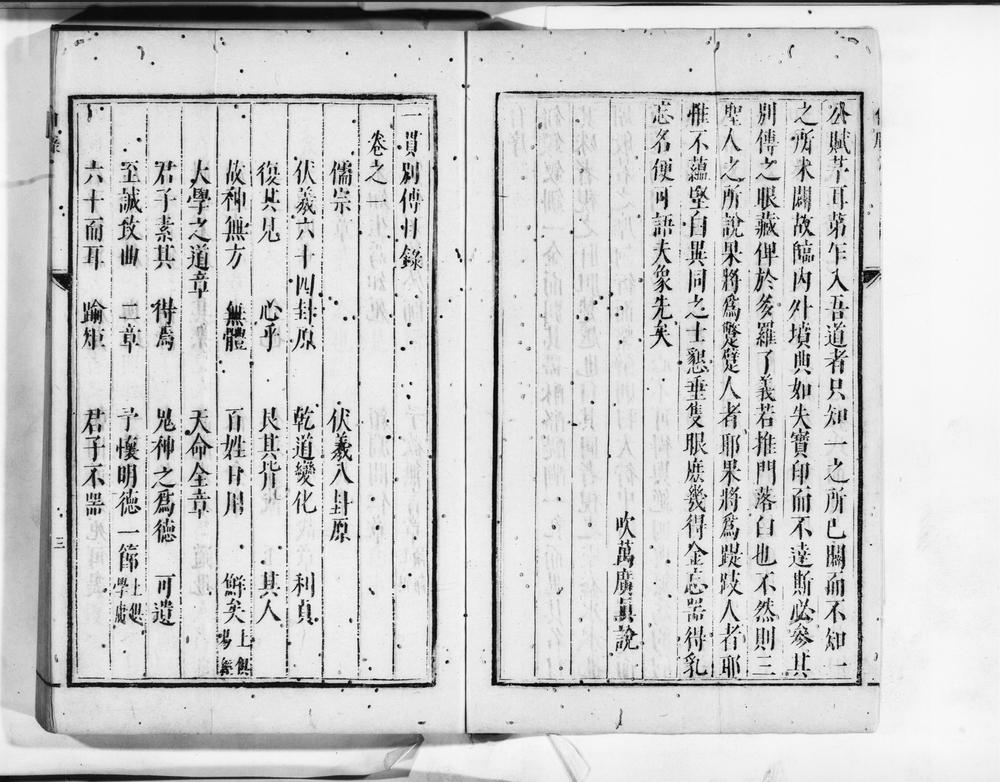 公賦芧耳第乍入吾道者只知一之所已闢而不知一
之所未闢故臨內外墳典如失寶印而不達斯必參其
別傳之眼藏俾於多羅了義若推門落臼也不然則三
聖人之所說果將爲蹩躄人者耶果將爲踶跂人者耶
惟不蘊堅白異同之士懇垂隻眼庶幾得金忘器得乳
忘名便可語夫象先矣
吹萬廣眞說
一貫別傳目錄
卷之一
儒宗 伏羲八卦原
伏羲六十四卦原 乾道變化 利貞
復其見 心乎 艮其背 其人
故神無方 無體 百姓日用 鮮矣 上俱易經
大學之道章 天命全章
君子素其 得焉 鬼神之爲德 可遺
至誠致曲 章 予懷明德一節 上俱學庸
六十而耳 踰矩 君子不器
三